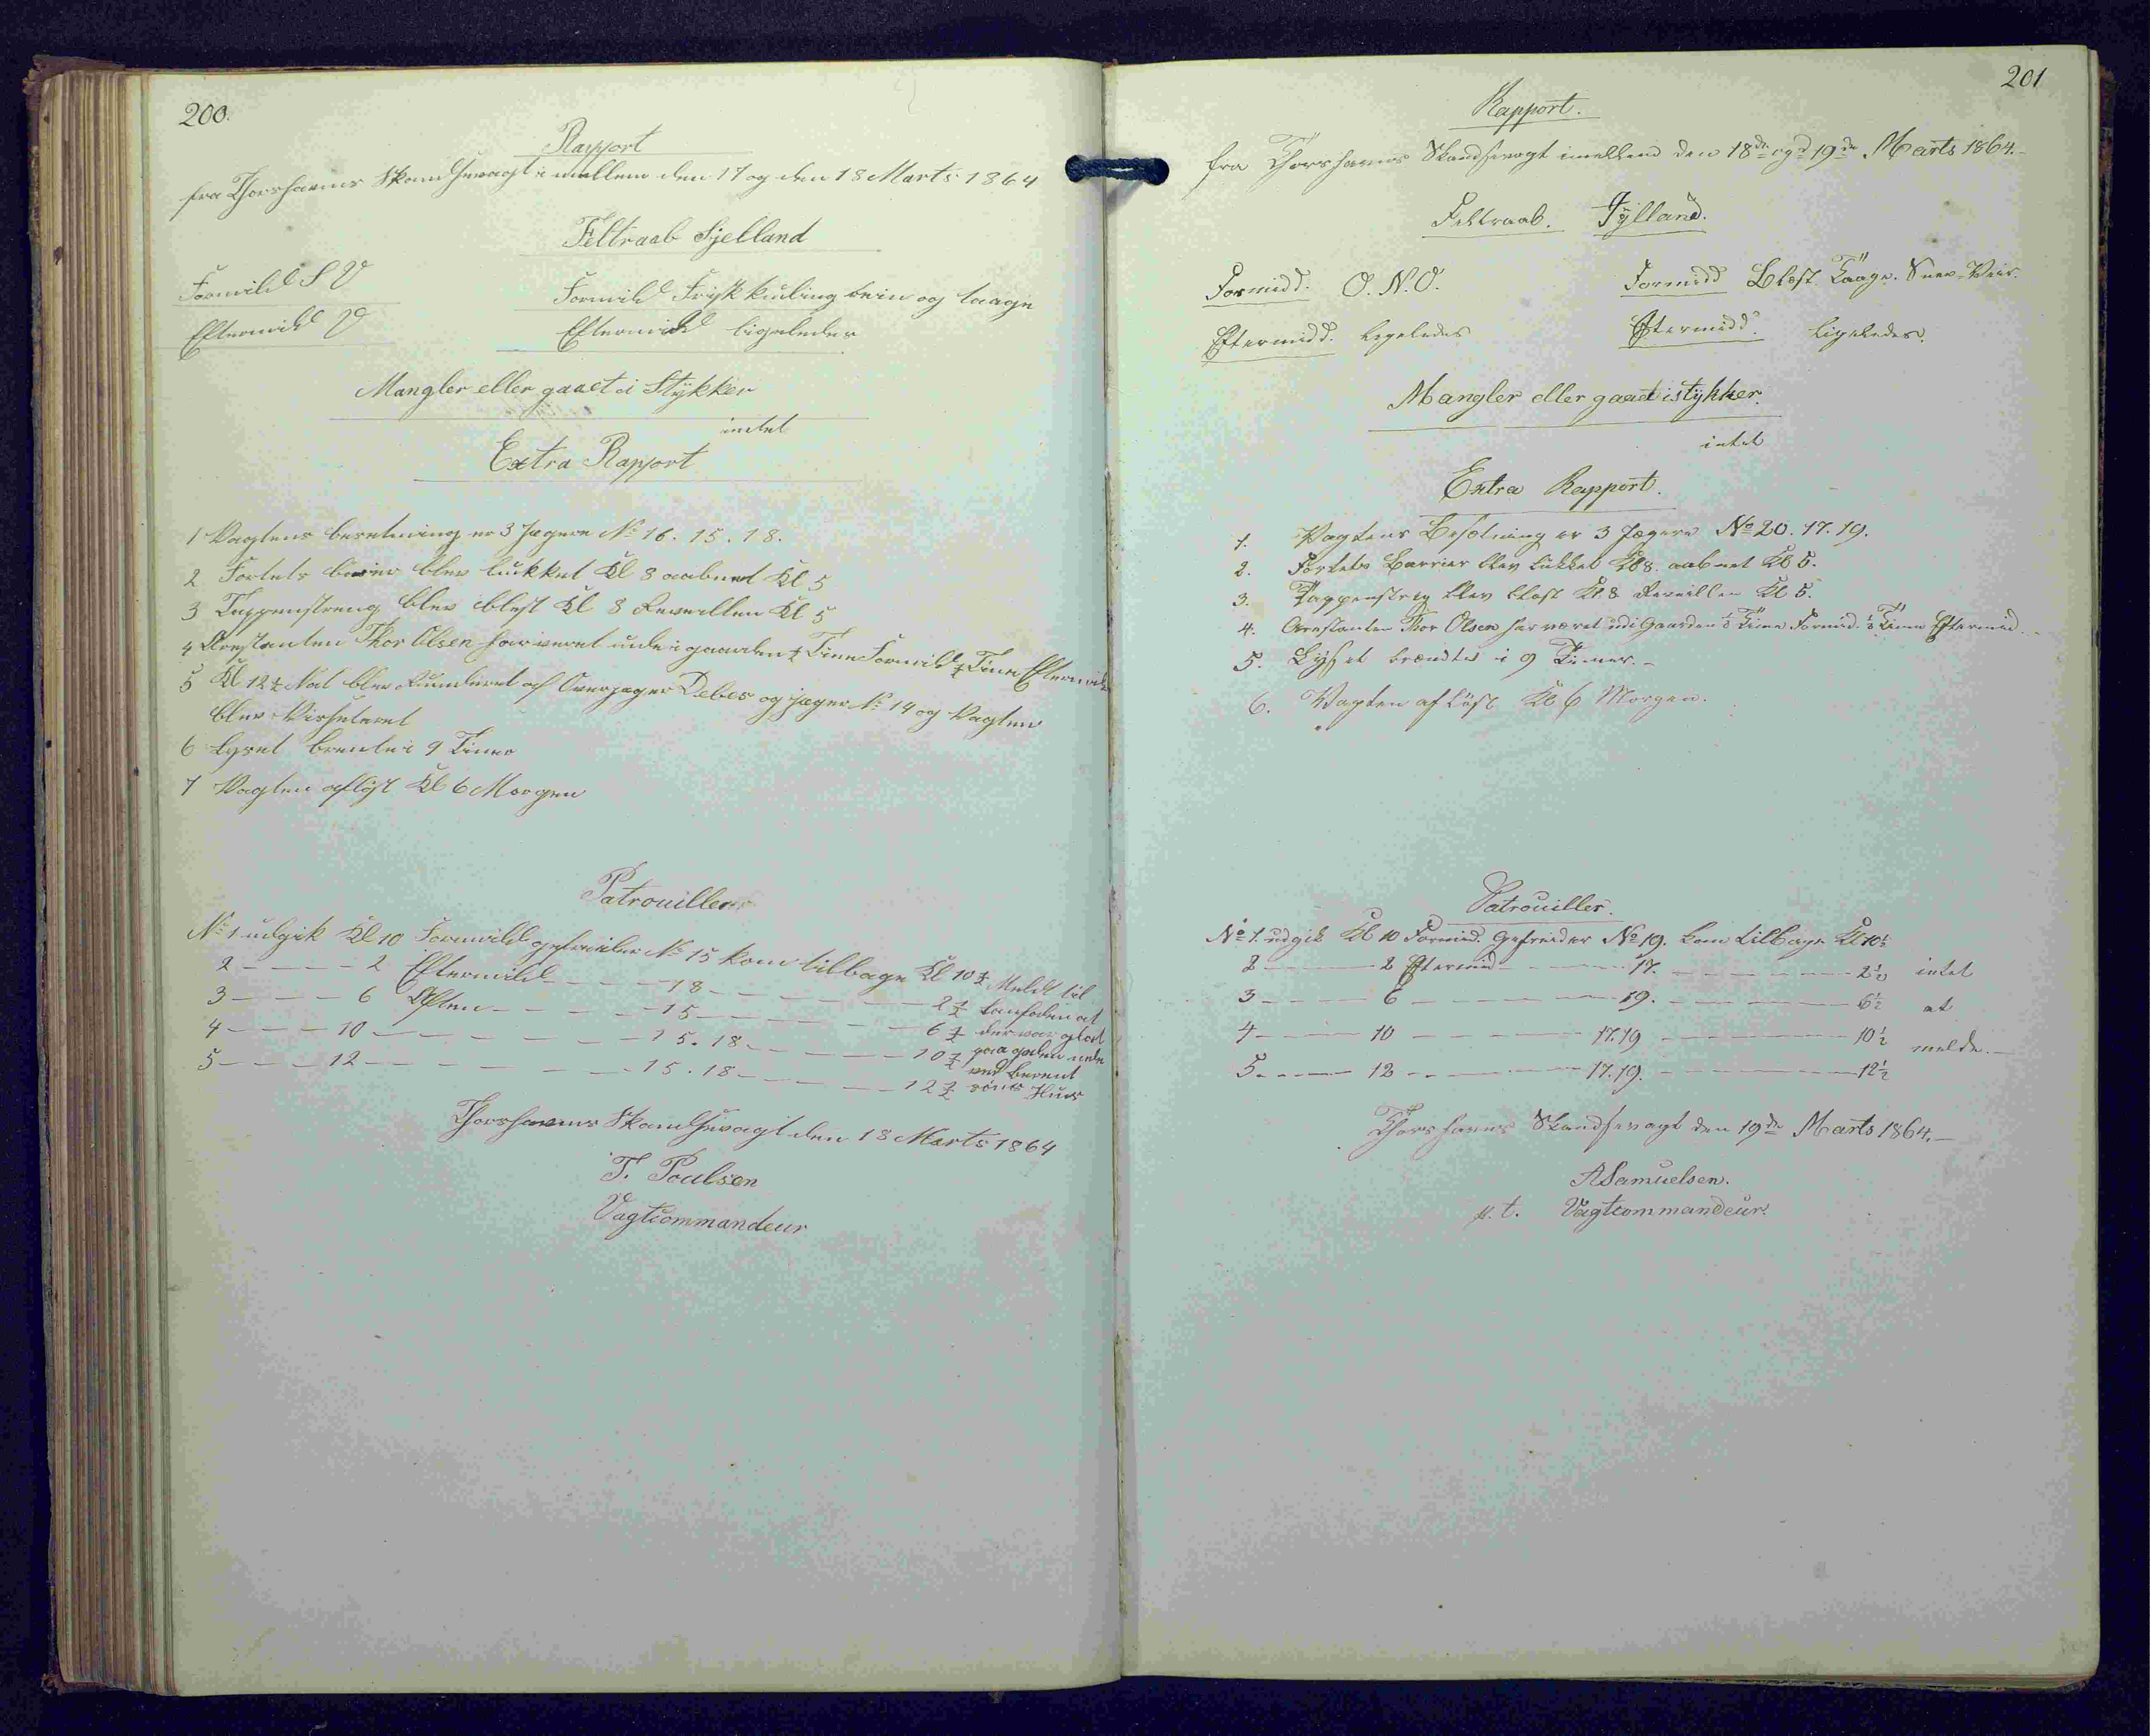 200.
Rapport
fra Thorshavns Skandsevagt imellem den 17 og den 18 Marts 1864
Feltraab Sjelland
Formidd S V
Formidd Frisk kuling tein og taage
Eftermidd V
Eftermidd ligeledes
Mangler eller gaaet i Stykker
intet
Extra Rapport
1 Vagtens besetning er 3 Jægere No 16. 15. 18.
2 Fortets barier blev lukket Kl 8 aabnet Kl 5
3 Tappenstreng blev blest Kl 8 Reveillen Kl 5
4 Arestanten Thor Olsen har veret ude i gaarden ½ Time Formidd ½ Time Eftermidd
5 Kl 12½ Nat blev Runderet af Overjæger Debes og jæger No 14 og Vagten
blev Visiteret
6 Lyset brente i 9 Timer
7 Vagten afløst Kl 6 Morgen
Patrouiller
No 1 udgik Kl 10 Formidd gefreider No 15 kom tilbage Kl 10½ Meldt til
2 — — — 2 Eftermidd — — — 18 — — — — 2½ at
3 — — — 6 Aften — — — 15 — — — — 6½ der var glat
4 — — — 10 — — — — 15. 18 — — — — 10½ paa gaden nede
5 — — 12 — — — — 15. 18 — — — — 12½ ved Huus
Thorshavns Skandsevagt den 18 Marts 1864
T. Poulsen
Vagtcommandeur
201
Rapport.
fra Thorshavns Skandsevagt imellem den 18de og d 19de Marts 1864.-
Feltraab. Jylland.
Formidd. O. N. O.
Formidd Blæst Taage. Snee-Veir.
Eftermidd. ligeledes
Eftermidd. ligeledes.
Mangler eller gaaet istykker.
intet
Extra Rapport.
1. Vagtens Besætning er 3 Jægere No 20. 17. 19.
2. Fortets Barrier blev lukket Kl 8. aabnet Kl 5.
3. Tappenstreg blev blæst Kl 8 Reveillen Kl 5.
4. Arrestanten Thor Olsen har været udi Gaarden ½ Time Formid. ½ Time Eftermid.
5. Lyset brændte i 9 Timer.-
6. Vagten afløst Kl 6 Morgen.
Patrouiller.
No 1. udgik Kl 10 Formid. Gefreider No 19. kom tilbage Kl 10½
2 — — — 2 Eftermid — — — 17. — — — — 2½ intet
3 — — — 6 — — — — 19. — — — — 6½ at
4 — — — 10 — — — — 17.19 — — — — 10½ melde.—
5 — — — 12 — — — — 17.19. — — — — 12½
Thorshavns Skandsevagt den 19de Marts 1864.—
A Samuelsen.
p. t. Vagtcommandeur.